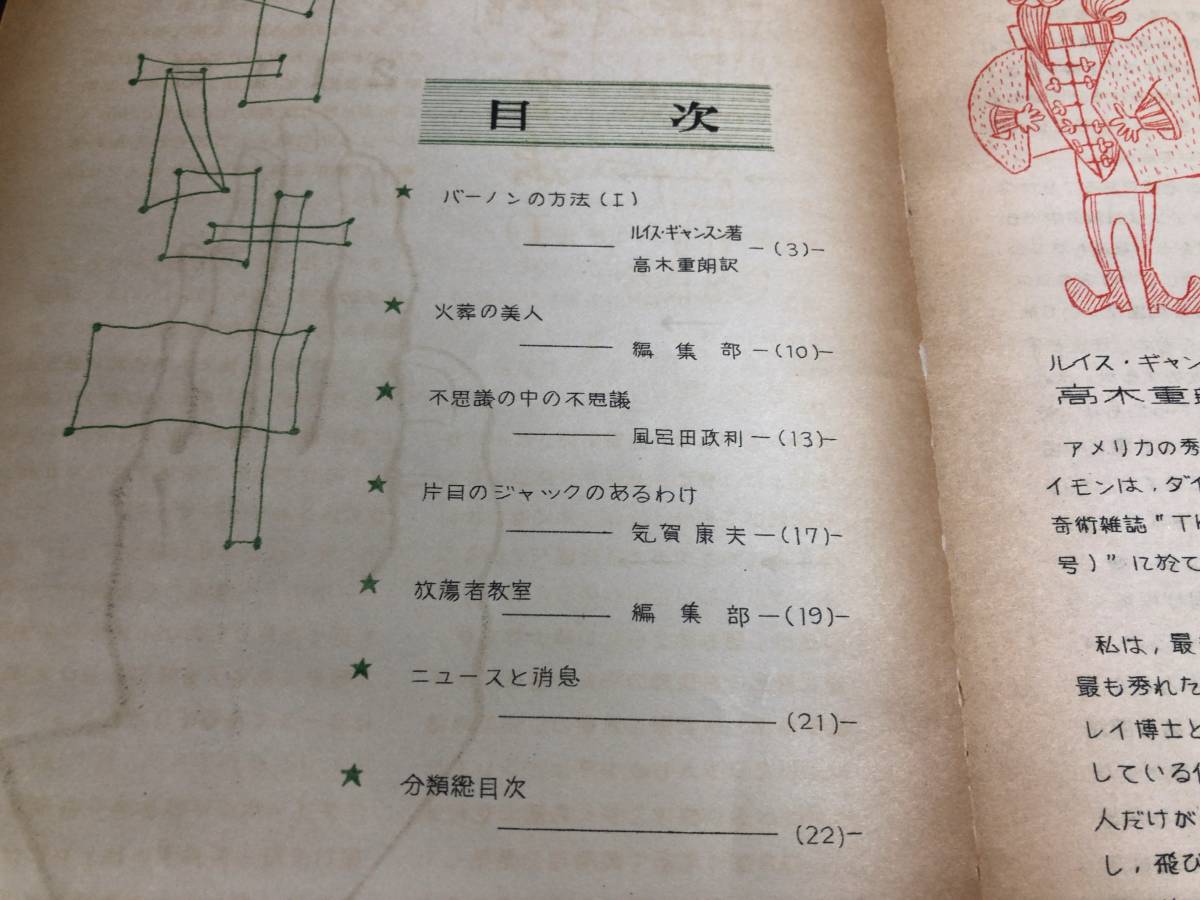 目 次
★ バーノンの方法(I)
ルイス・ギャンスン著
高木重朗訳 -(3)-
★ 火葬の美人
編集部 -(10)-
★ 不思議の中の不思議
風呂田政利 -(13)-
★ 片目のジャックのあるわけ
気賀康夫 -(17)-
★ 放蕩者教室
編集部 -(19)-
★ ニュースと消息
(21)-
★ 分類総目次
(22)-
ルイス・ギャン
高木重
アメリカの秀
イモンは,ダイ
奇術雑誌"TH
号)"に於て
私は,最
最も秀れた
レイ博士と
している
人だけが
し,飛び